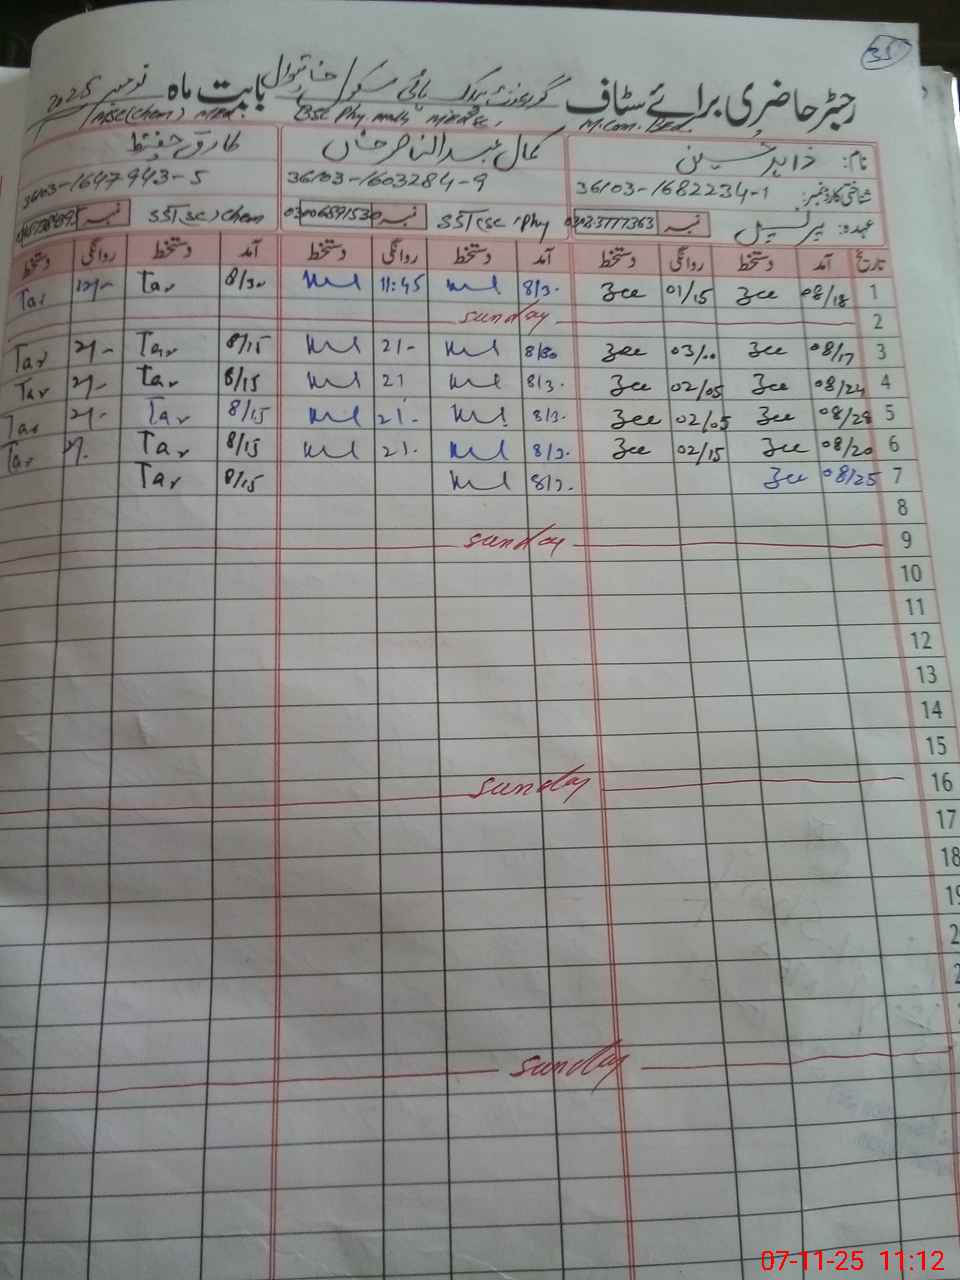 35
رجسٹر حاضری برائے سٹاف گورنمنٹ ہائی سکول خانیوال بابت ماہ نومبر 2025
M.Com. B.Ed. BSc Phy math MSc(chem) M.Ed.
نام: زاہد حسین کمال عبدالناصر خاں طارق حفیظ
شناختی کارڈ نمبر: 36103-1682234-1 36103-1603284-9 36103-1647943-5
عہدہ: پرنسپل نمبر 03083777363 SST(sc)Phy نمبر 03006891530 SST(sc)chem نمبر
تاریخ آمد دستخط روانگی دستخط آمد دستخط روانگی دستخط آمد دستخط روانگی دستخط
1 08/18 Zee 01/15 Zee 8/3. 11:45 8/30 Tar 12/- Tar
2 sunday
3 08/17 Zee 03/00 Zee 8/30 2/- 8/15 Tar 2/- Tar
4 08/24 Zee 02/05 Zee 8/3. 2/ 8/15 Tar 2/- Tar
5 08/28 Zee 02/05 Zee 8/3. 2/- 8/15 Tar 2/- Tar
6 08/20 Zee 02/15 Zee 8/3. 2/- 8/15 Tar 2/. Tar
7 08/25 Zee 8/3. 8/15 Tar
8
9 sunday
10
11
12
13
14
15
16 sunday
17
18
19
sunday
07-11-25 11:12